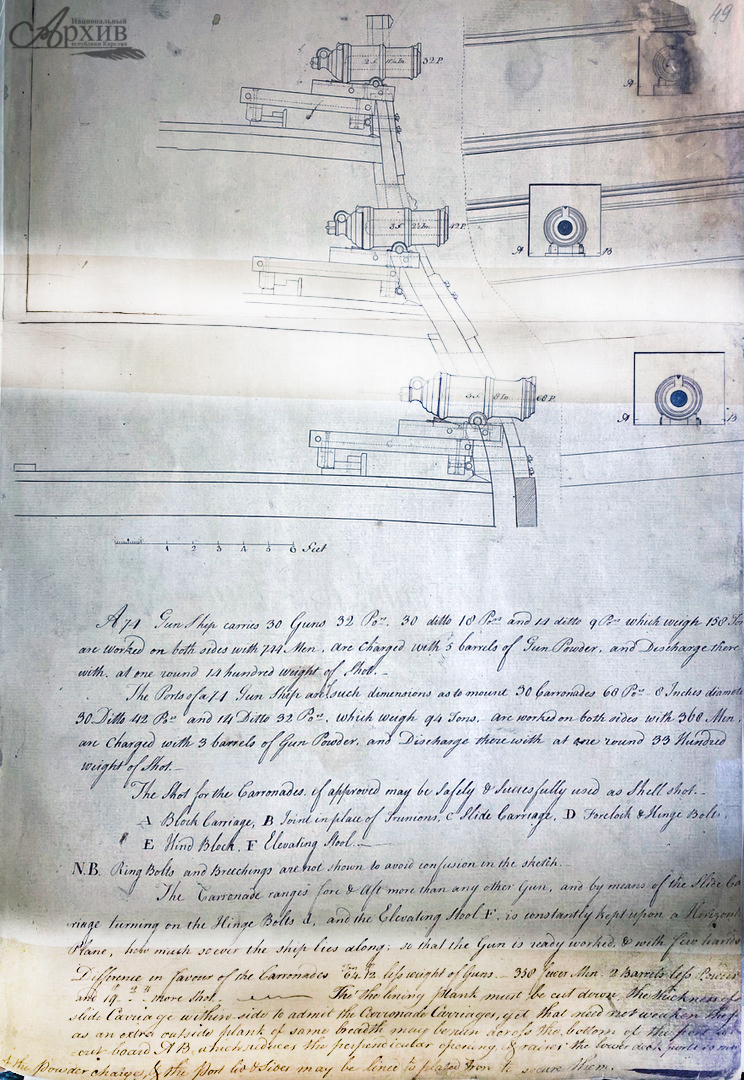 Национальный
Архив
республики Карелия
49
2 f 32 P.
A
3 f 42 P.
A B
8 In 68 P.
A B
1 2 3 4 5 6 Feet
A 74 Gun Ship carries 30 Guns 32 Po.rs 30 ditto 18 Po.rs and 14 ditto 9 Po.rs which weigh 158
are worked on both sides with 744 Men, are charged with 5 barrels of Gun Powder, and Discharge there
with, at one round 14 hundred weight of Shot.
The Ports of a 74 Gun Ship are such dimensions as to mount 30 Carronades 68 Po.rs 8 Inches
30 Ditto 42 P.rs and 14 Ditto 32 Po.rs, which weigh 94 Tons, are worked on both sides with 368 Men,
are Charged with 3 barrels of Gun Powder, and Discharge there with at one round 33 Hundred
weight of Shot.
The Shot for the Carronades, if approved may be Safely & Successfully used as Shell shot.
A Block Carriage, B Joint in place of Trunions, C Slide Carriage, D Forelock & Hinge Bolts,
E Hind Block, F Elevating Stool.
N.B. Ring Bolts and Breechings are not shown to avoid confusion in the sketch.
The Carronade ranges fore & Aft more than any other Gun, and by means of the Slide Ca
riage turning on the Hinge Bolts d, and the Elevating Stool F, is constantly kept upon a
Plane, how much so ever the ship lies along; so that the Gun is ready worked, & with few hands
Difference in favour of the Carronades less weight of Guns 338 fewer Men, 2 Barrels less Powder
and 19 more Shot. The lining plank must be cut down, the thickness of
slide Carriage within side to admit the Carronade Carriages, yet that need not weaken
as an extra outside plank of same breadth may be run across the bottom of the port
out board A B, which reduces the perpendicular opening, & raises the lower
the Powder charges, & the Port lid & Sides may be lined to plated Iron to secure them.